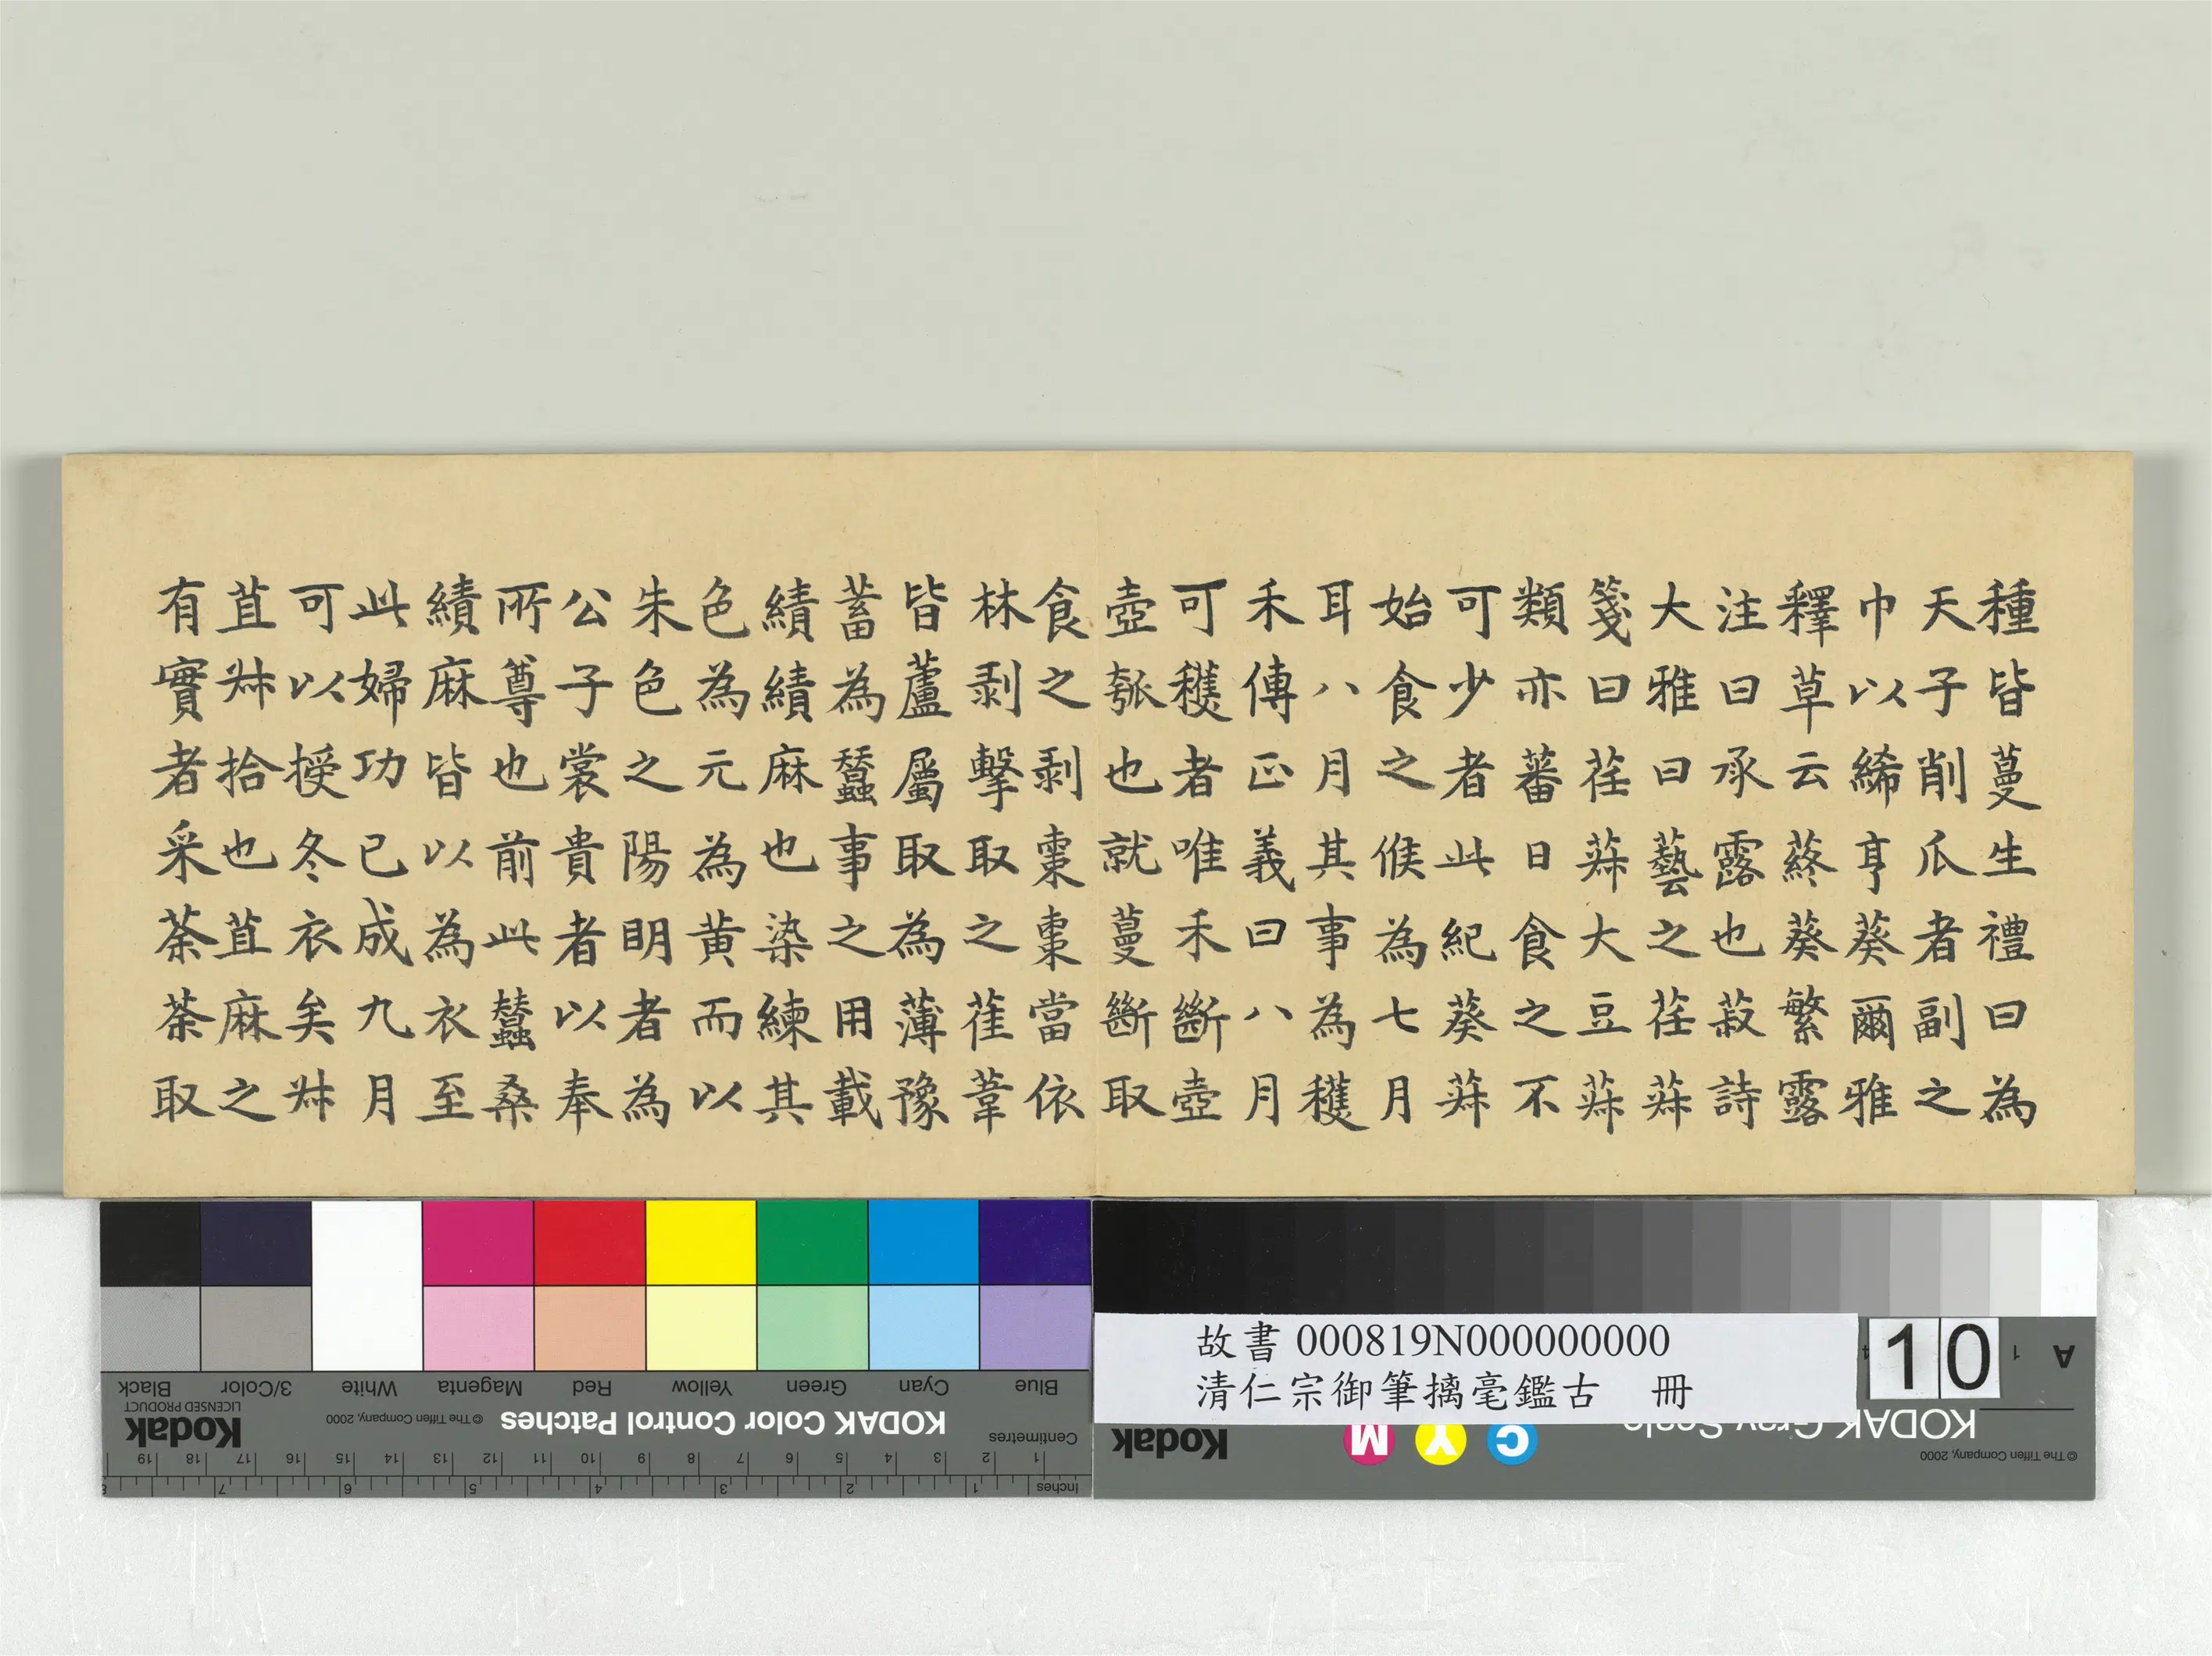 種皆蔓生禮曰為
天子削瓜者副之
巾以絺亨葵爾雅
釋草云蔠葵繁露
注曰承露也菽詩
大雅曰藝之荏菽
箋曰荏菽大豆菽
類亦蕃日食之不
可少者此紀葵菽
始食之候為七月
耳八月其事為穫
禾傳正義曰八月
可穫者唯禾斷壺
壺瓠也就蔓斷取
食之剥棗棗當依
林剥擊取之萑葦
皆蘆屬取為薄豫
蓄為蠶事之用載
績績麻也染練其
色為元為黄而以
朱色之陽明者為
公子裳貴者以奉
所尊也前此蠶桑
績麻皆以為衣至
此婦功已成九月
可以授冬衣矣叔
苴叔拾也苴麻之
有實者采荼荼取
故書 000819N000000000
清仁宗御筆摛毫鑑古 冊
10
A
1
Blue Cyan Green Yellow Red Magenta White 3/Color Black
KODAK Color Control Patches
© The Tiffen Company, 2000
Kodak
LICENSED PRODUCT
Centimetres 1 2 3 4 5 6 7 8 9 10 11 12 13 14 15 16 17 18 19
Inches 1 2 3 4 5 6 7 8
KODAK Gray Scale
© The Tiffen Company, 2000
C Y M
Kodak